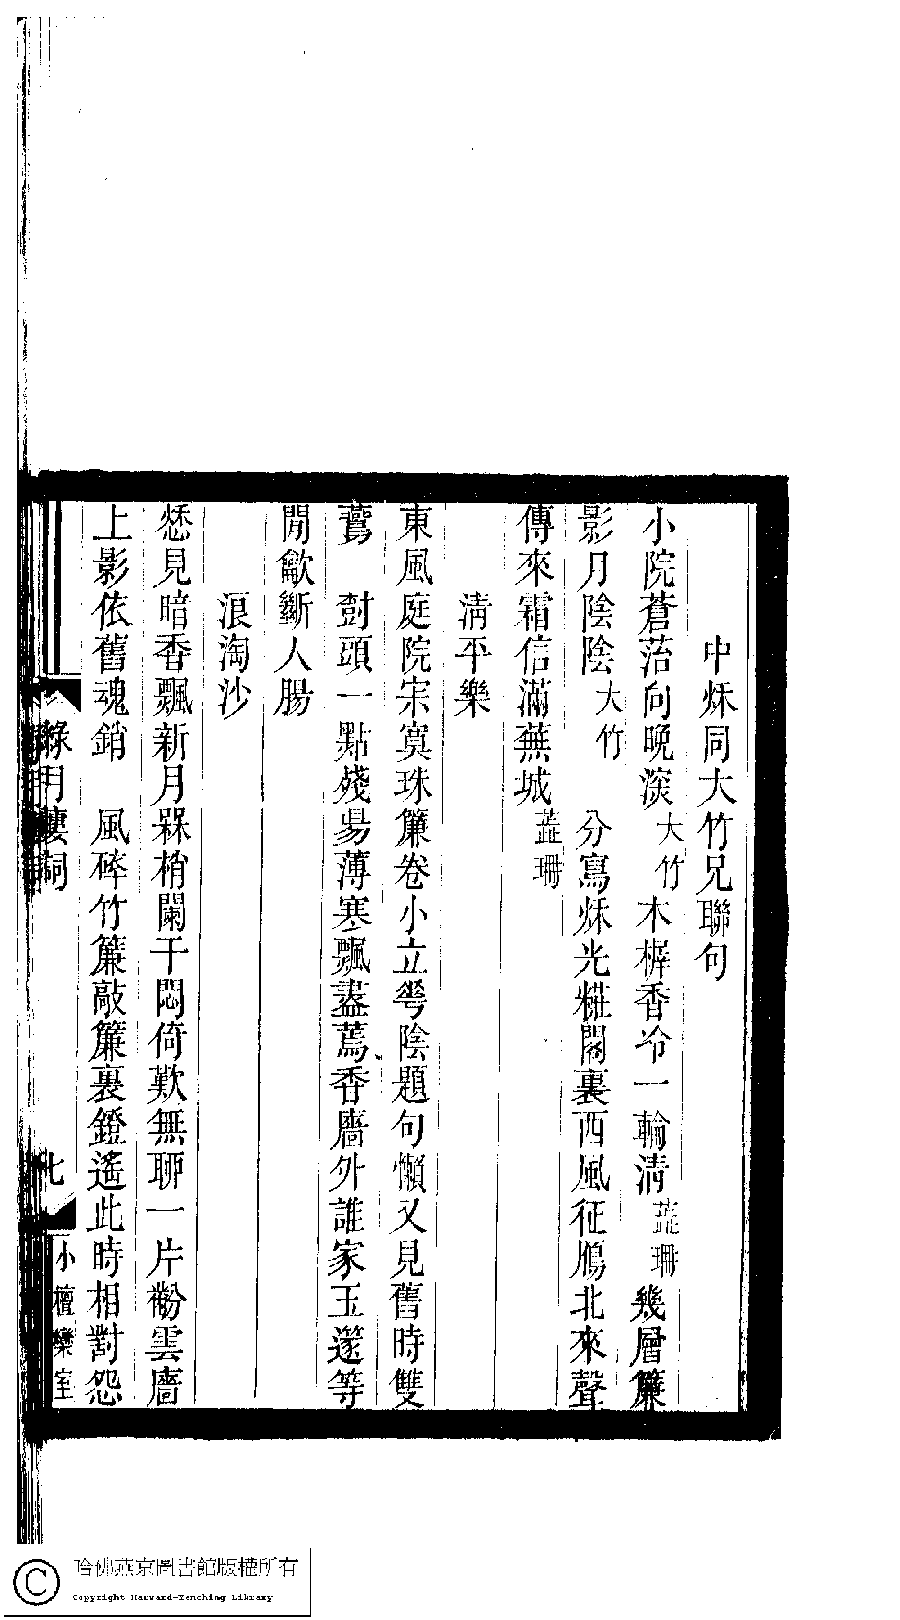 中秌同大竹兄聯句
小院蒼苔向晚深大竹木樨香冷一輪清蕋珊幾層簾
影月陰陰大竹　分寫秌光糚閣裏西風征鴈北來聲
傳來霜信滿蕪城蕋珊
清平樂
東風庭院宗寞珠簾卷小立蕚陰題句懶又見舊時雙
鷰　尌頭一點殘昜薄寒飄盡蔫香廧外誰家玉篴等
閒歈斷人腸
浪淘沙
愁見暗香飄新月槑梢闌干悶倚歎無聊一片鬱雲廧
上影依舊魂銷　風碎竹簾敲簾裏鐙遙此時相對怨
綠月廔詞
七
小檀欒室
哈佛燕京圖書館版權所有
Copyright Harvard-Yenching Library